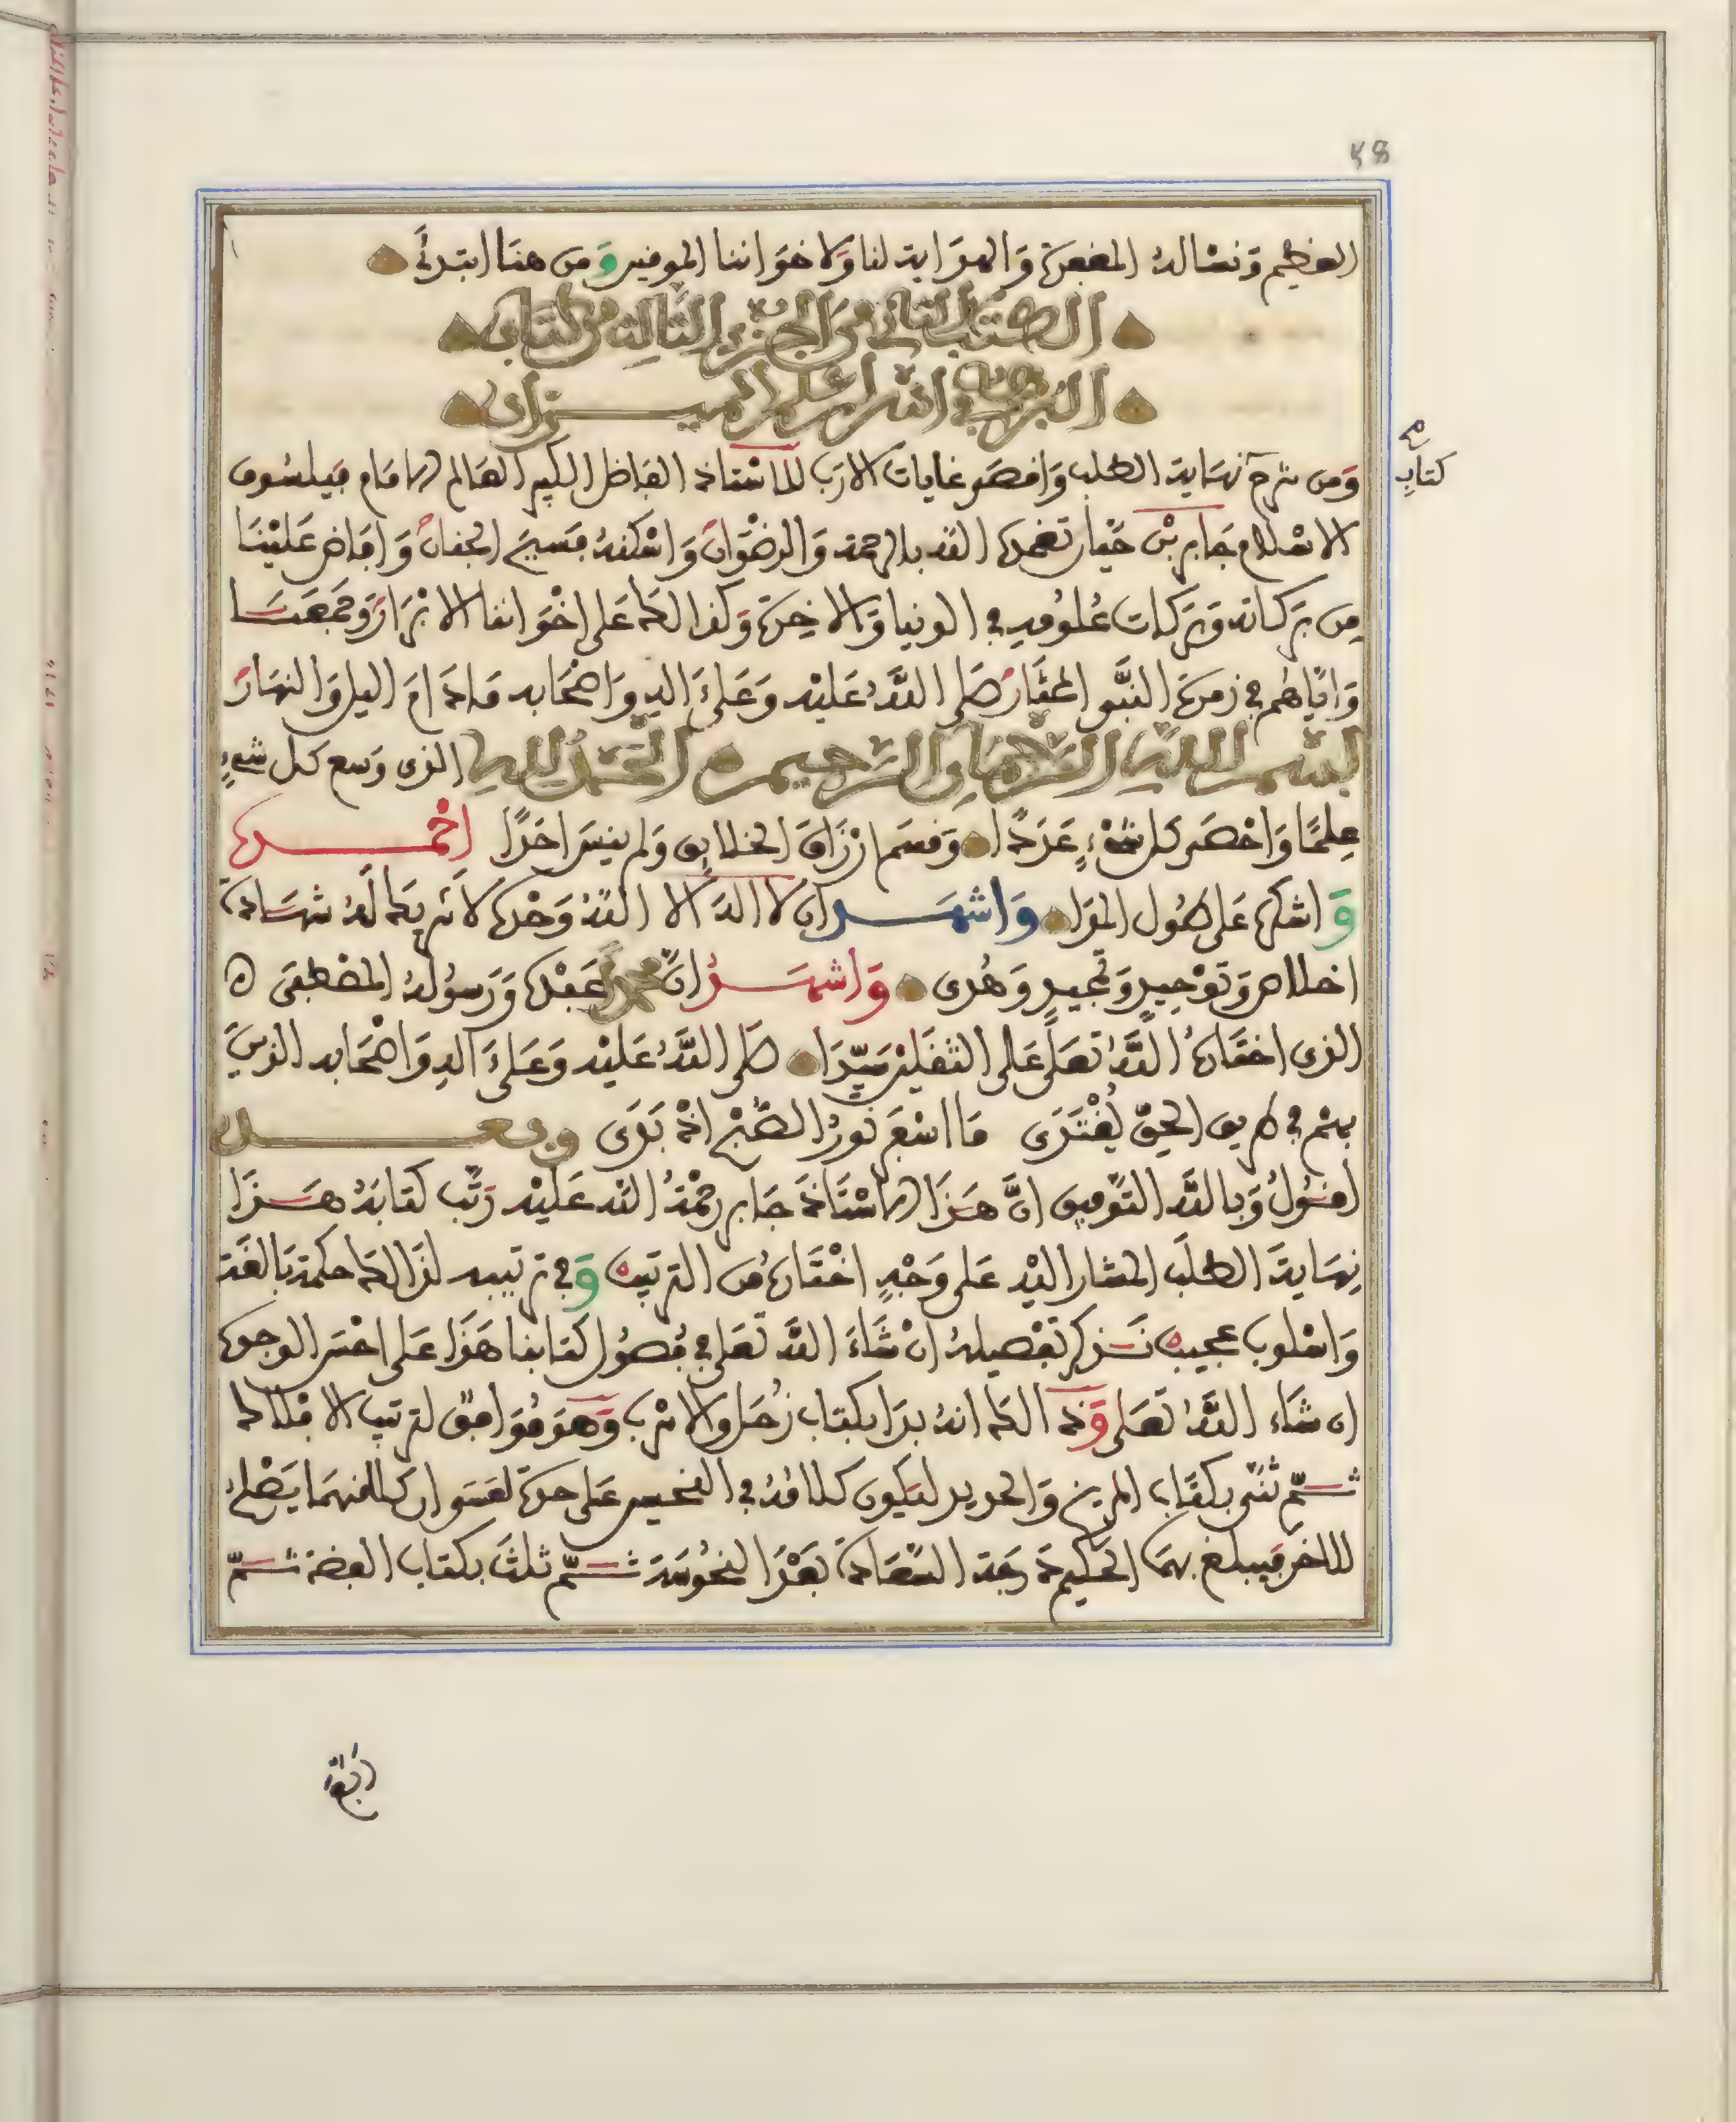 ٤٨
العظيم ونساله المغفرة والهداية لنا ولاخواننا المومنين ومن هنا ابتدئ
الكتاب الثاني من الجزء الثالث من كتاب
البرهان في اسرار علم الميزان
ومن شرح نهاية الطلب واقصى غايات الارب للاستاذ الفاضل الكبير العالم الامام فيلسوف
كتاب
الاسلام جابر بن حيان تغمده الله بالرحمة والرضوان واسكنه فسيح الجنان وافاض علينا
من بركاته وبركات علومه في الدنيا والاخرة وكذالك على اخواننا الابرار وجمعنا
واياهم في زمرة النبي المختار صلى الله عليه وعلى ءاله واصحابه مادام اليل والنهار
بسم الله الرحمن الرحيم الحمد لله الذي وسع كل شيء
علما واحصى كل شيء عددا وقسم ارزاق الخلايق ولم ينس احدا احمده
واشكره على طول المدا واشهد ان لا اله الا الله وحده لا شريك له شهادة
اخلاص وتوحيد وتمجيد وهدى واشهد ان محمدا عبده ورسوله المصطفى
الذي اختاره الله تعلى على الثقلين سيدا صلى الله عليه وعلى ءاله واصحابه الذين
بهم في طريق الحق يقتدى ما اسفر نور الصبح اذ بدى وبعد
اقول وبالله التوفيق ان هذا الاستاذ جابر رحمة الله عليه رتب كتابه هذا
نهاية الطلب المشار اليه على وجه اختاره من الترتيب وفي ترتيبه لذالك حكمة بالغة
واسلوب عجيب نذكر تفصيله ان شاء الله تعلى في فصول كتابنا هذا على احسن الوجوه
ان شاء الله تعلى وذالك انه بدا بكتاب زحل والاسرب وهو موافق لترتيب الافلاك
ثم ثنى بكتاب المريخ والحديد ليكون كلامه في النحسين على حدة لعسوان كلا منهما يصلح
للاخر فيبلغ بهما الحكيم درجة السعادة بعد النحوسة ثم ثلث بكتاب الفضة ثم